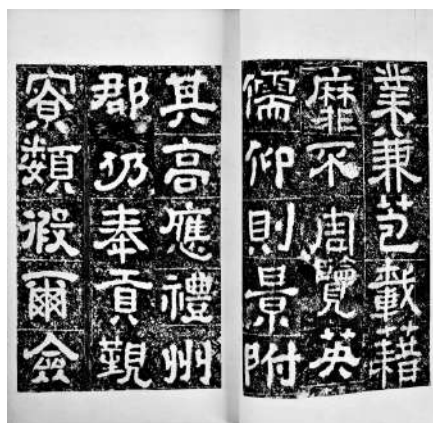 業兼苞載藉
靡不周覽英
儒仰則景附
其高應禮州
郡仍奉貢覲
寮類徦爾僉